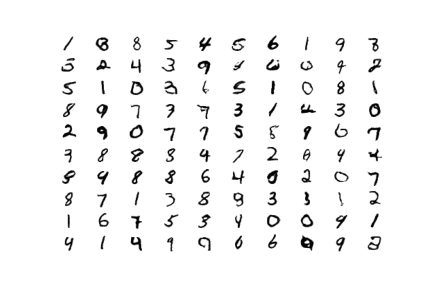 1 8 8 5 4 5 6 1 9 8
3 2 4 3 9 1 6 0 9 2
5 1 0 3 6 5 1 0 8 1
8 9 7 7 7 3 1 4 3 0
2 9 0 7 7 5 8 9 6 7
7 8 8 8 4 7 2 8 9 4
9 9 8 8 6 4 0 2 0 7
8 7 1 3 8 9 3 3 1 2
1 6 7 5 3 4 0 0 9 1
4 1 4 9 9 6 6 9 9 2